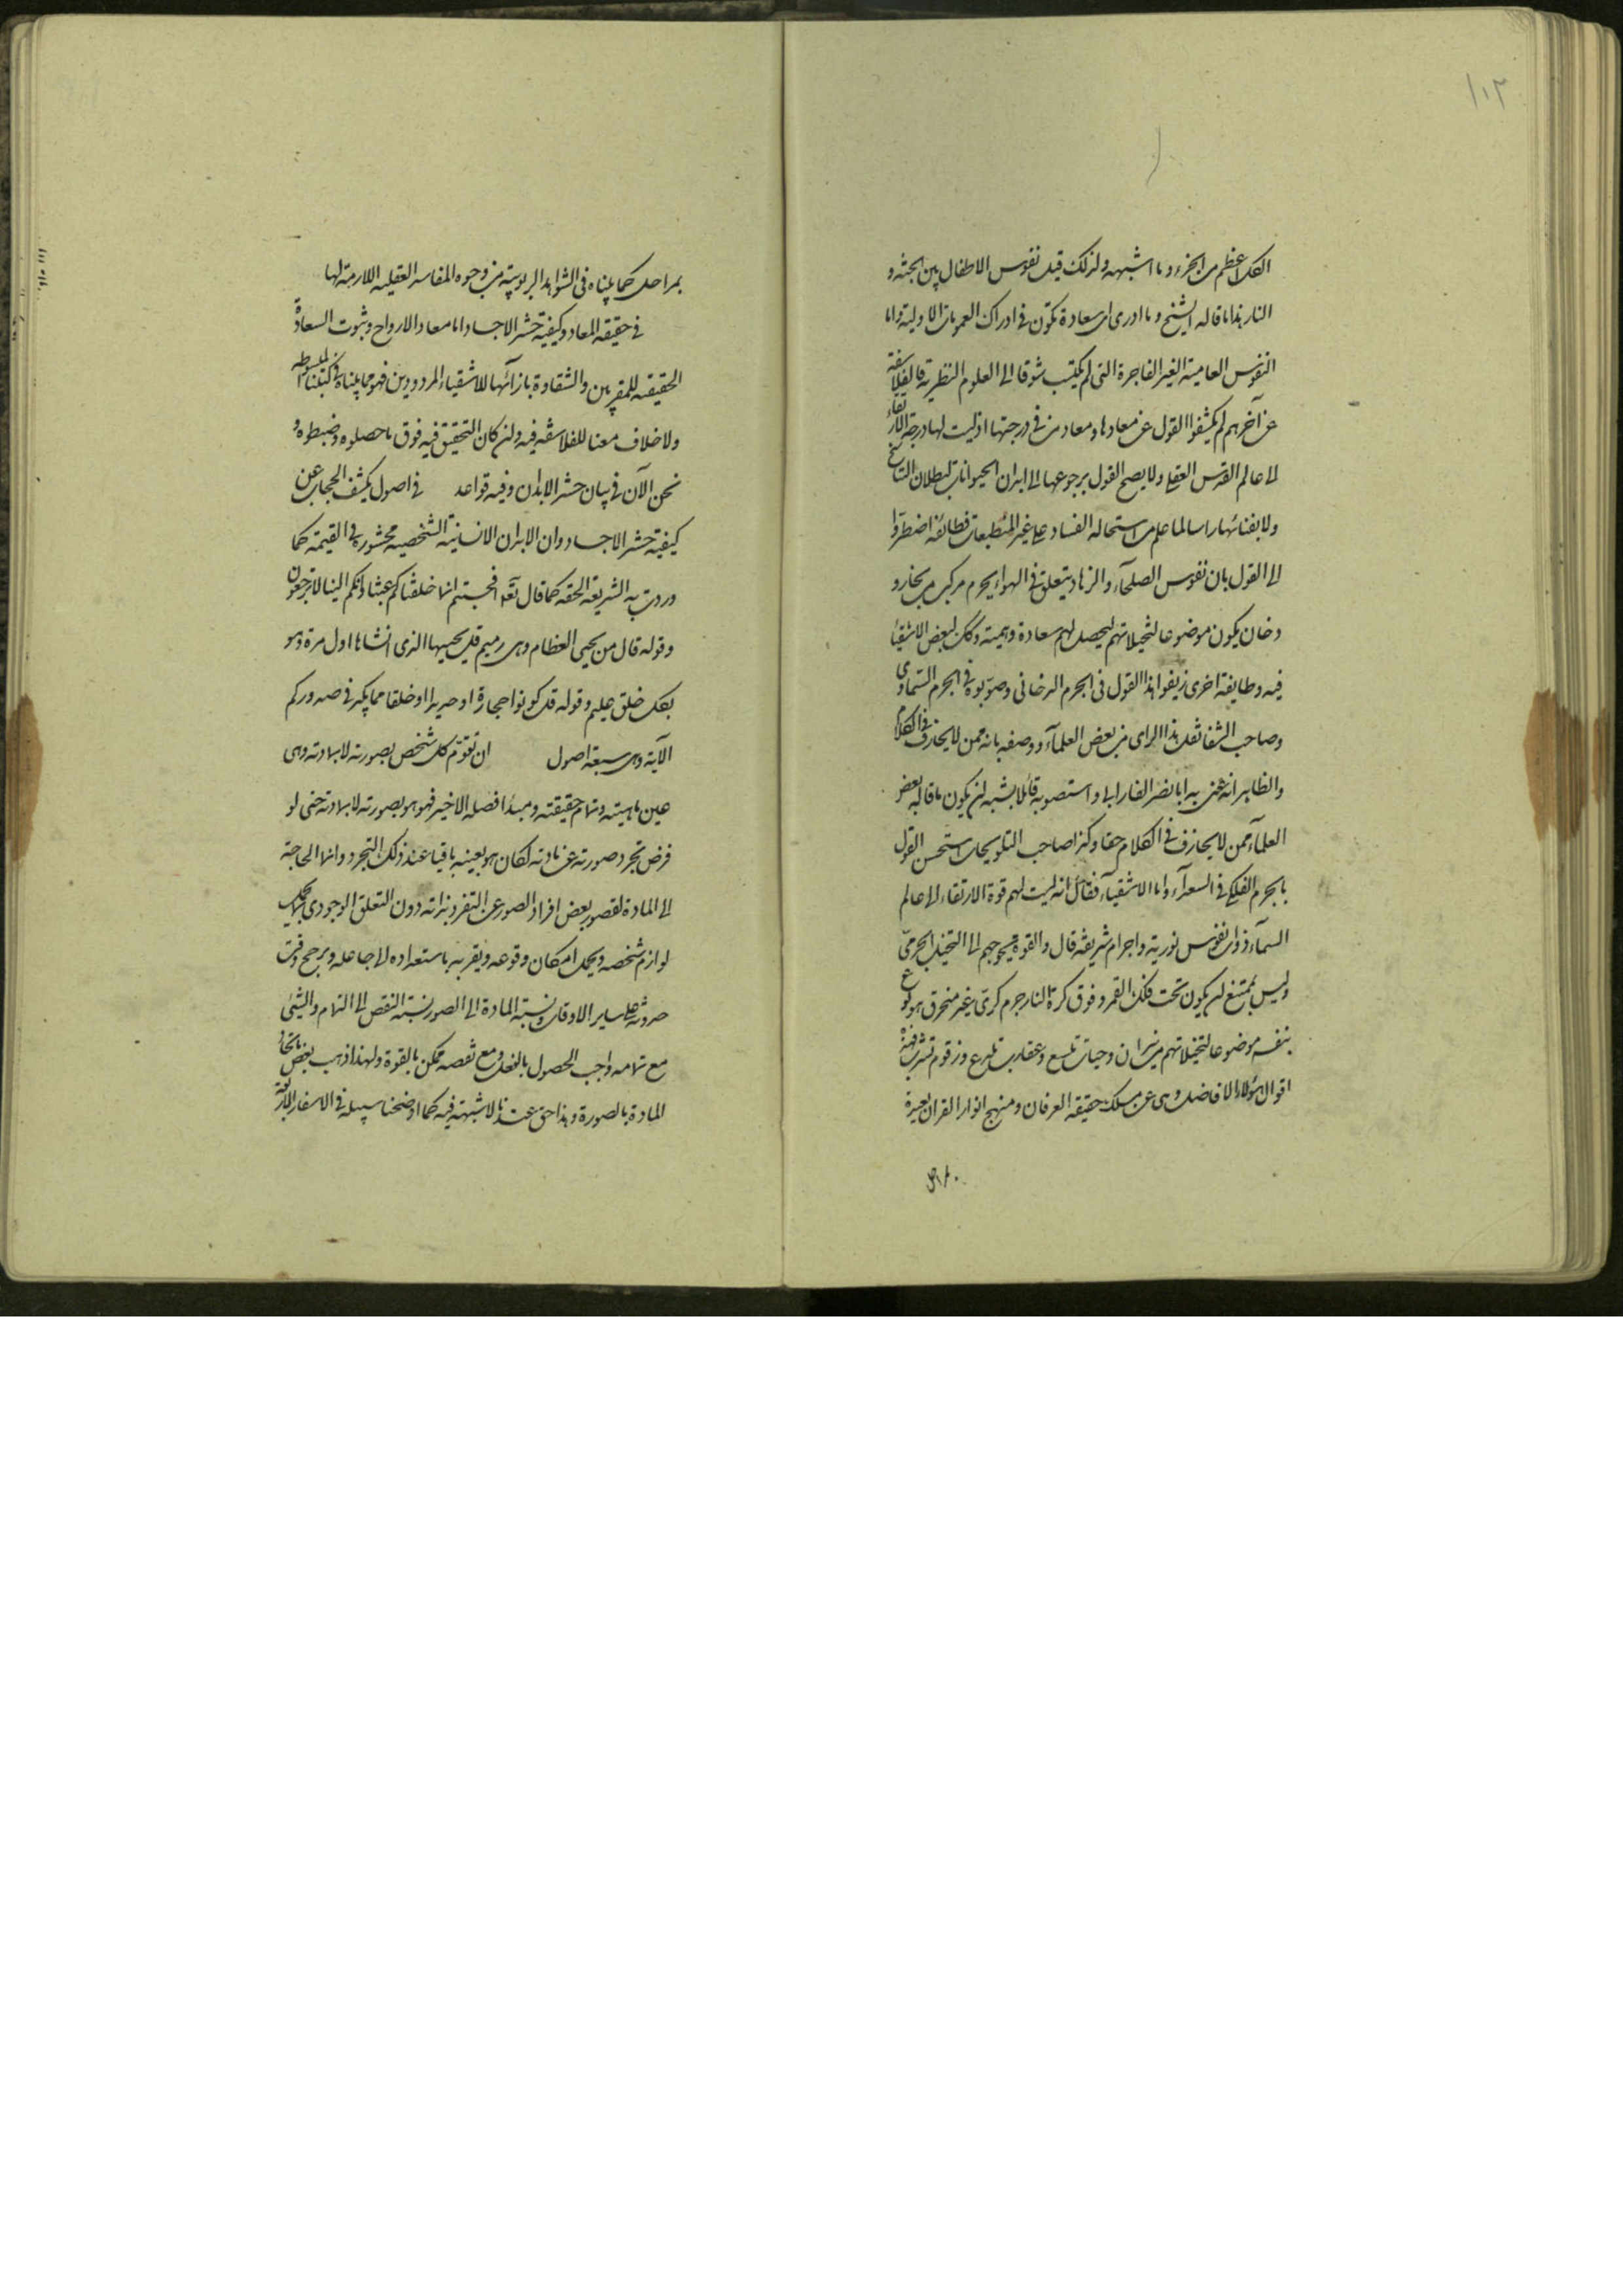 ١٠٣
الكل اعظم من الجزء وما اشبهه ولذلك قيل نفوس الاطفال بين الجنة و
النار هذا ما قاله الشيخ وما ادرى اى سعادة تكون فى ادراك العموميات الاولية واما
النفوس العامية الغير الفاجرة التى لم يكتسب شوقا الى العلوم النظرية فالفلاسفة
عن آخرهم لم يكشفوا القول عن معادها ومعاد من فى درجتها اذ ليست لها درجة الارتقاء
الى عالم القدس العقلى ولا يصح القول برجوعها الى ابدان الحيوانات لبطلان التناسخ
ولا بفنائها راسا لما علم من استحالة الفساد على غير المنطبعات فطائفة اضطروا
الى القول بان نفوس الصلحآء والزهاد يتعلق فى الهواء بجرم مركب من بخار و
دخان يكون موضوعا لتخيلاتهم ليحصل لهم سعادة وهمية وكذلك لبعض الاشقياء
فيه وطايفة اخرى زيفوا هذا القول فى الجرم الدخانى وصوبوه فى الجرم السماوى
وصاحب الشفا نقل هذا الراى من بعض العلمآء ووصفه بانه ممن لا يجازف فى الكلام
والظاهر انه عنى به ابا نصر الفارابى واستصوبه قائلا يشبه ان يكون ما قاله بعض
العلمآء ممن لا يجازف فى الكلام حقا وكذا صاحب التلويحات استحسن القول
بالجرم الفلكى فى السعدآء واما الاشقيآء فقال انه ليست لهم قوة الارتقاء الى عالم
السمآء ذوات نفوس نورية واجرام شريفة قال والقوة تحوجهم الى التخيل الجرمى
وليس بممتنع ان يكون تحت فلك القمر وفوق كرة النار جرم كرى غير منخرق هو نوع
بنفسه موضوعا لتخيلاتهم من نيران وحيات تلسع وعقارب تلدغ وزقوم تشرب فهذه
اقوال هؤلاء الافاضل وهى عن مسلك حقيقة العرفان ومنهج انوار القران بعيدة
بمراحل كما بيناه فى الشواهد الربوبية من وجوه المفاسد العقلية اللازمة لها
فى حقيقة المعاد وكيفية حشر الاجساد اما معاد الارواح وثبوت السعادة
الحقيقة للمقربين والشقاوة بازائها للاشقياء المردودين فهو مما بيناه فى كتبنا المبسوطة
ولا خلاف معنا للفلاسفة فيه وان كان التحقيق فيه فوق ما حصلوه وضبطوه و
نحن الآن فى بيان حشر الابدان وفيه قواعد فى اصول يكشف الحجاب عن
كيفية حشر الاجساد وان الابدان الانسانية الشخصية محشورة فى القيمة كما
وردت به الشريعة الحقة كما قال تعه افحسبتم انما خلقناكم عبثا وانكم الينا لا ترجعون
وقوله قال من يحيى العظام وهى رميم قل يحييها الذى انشاها اول مرة وهو
بكل خلق عليم وقوله قل كونوا حجارة او حديدا او خلقا مما يكبر فى صدوركم
الآية وهى سبعة اصول ان تقوم كل شخص بصورته لا بمادته وهى
عين ماهيته وتمام حقيقته ومبدا فصله الاخير فهو هو بصورته لا بمادته حتى لو
فرض تجرد صورته عن مادته لكان هو بعينه باقيا عند ذلك التجرد وانما الحاجة
الى المادة لقصور بعض افراد الصور عن التفرد بذاته دون التعلق الوجودى بما يحمل
لوازم شخصه ويحمل امكان وقوعه ويقربه باستعداده الى جاعله ويرجح وقت
حدوثه على ساير الاوقات ونسبة المادة الى الصور نسبة النقص الى التمام والشئ
مع تمامه واجب الحصول بالفعل ومع نقصه ممكن بالقوة ولهذا ذهب بعض باتحاد
المادة بالصورة وهذا حق عندنا لا شبهة فيه كما اوضحنا سبيله فى الاسفار الاربعة